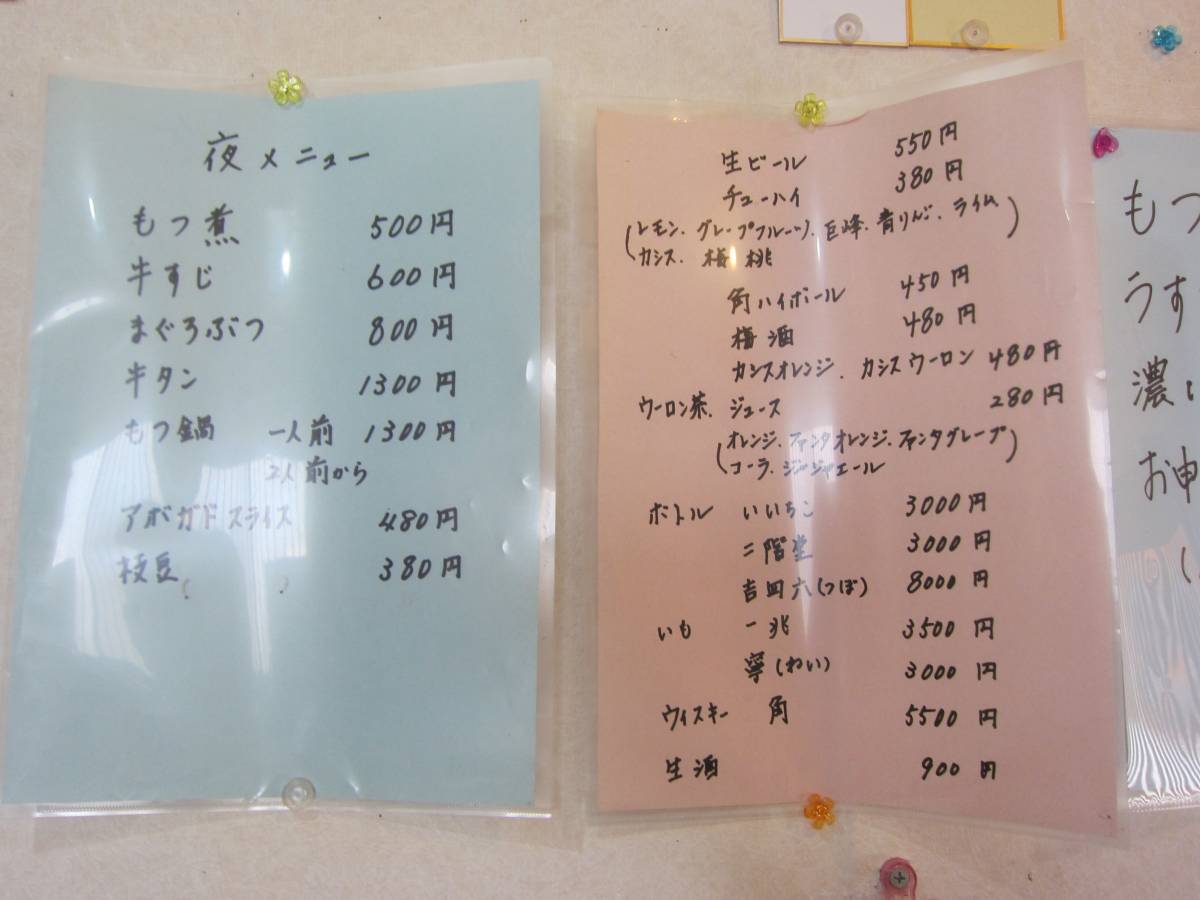 夜メニュー
もつ煮 500円
牛すじ 600円
まぐろぶつ 800円
牛タン 1300円
もつ鍋 一人前 1300円
2人前から
アボガドスライス 480円
枝豆 380円
生ビール 550円
チューハイ 380円
(レモン、グレープフルーツ、巨峰、青りんご、ライム
カシス、梅 桃)
角ハイボール 450円
梅酒 480円
カシスオレンジ、カシスウーロン 480円
ウーロン茶、ジュース 280円
(オレンジ、ファンタオレンジ、ファンタグレープ
コーラ、ジンジャエール)
ボトル いいちこ 3000円
二階堂 3000円
吉四六(つぼ) 8000円
いも 一兆 3500円
寧(ねい) 3000円
ウィスキー 角 5500円
生酒 900円
もつ
うす
濃い
お申
(